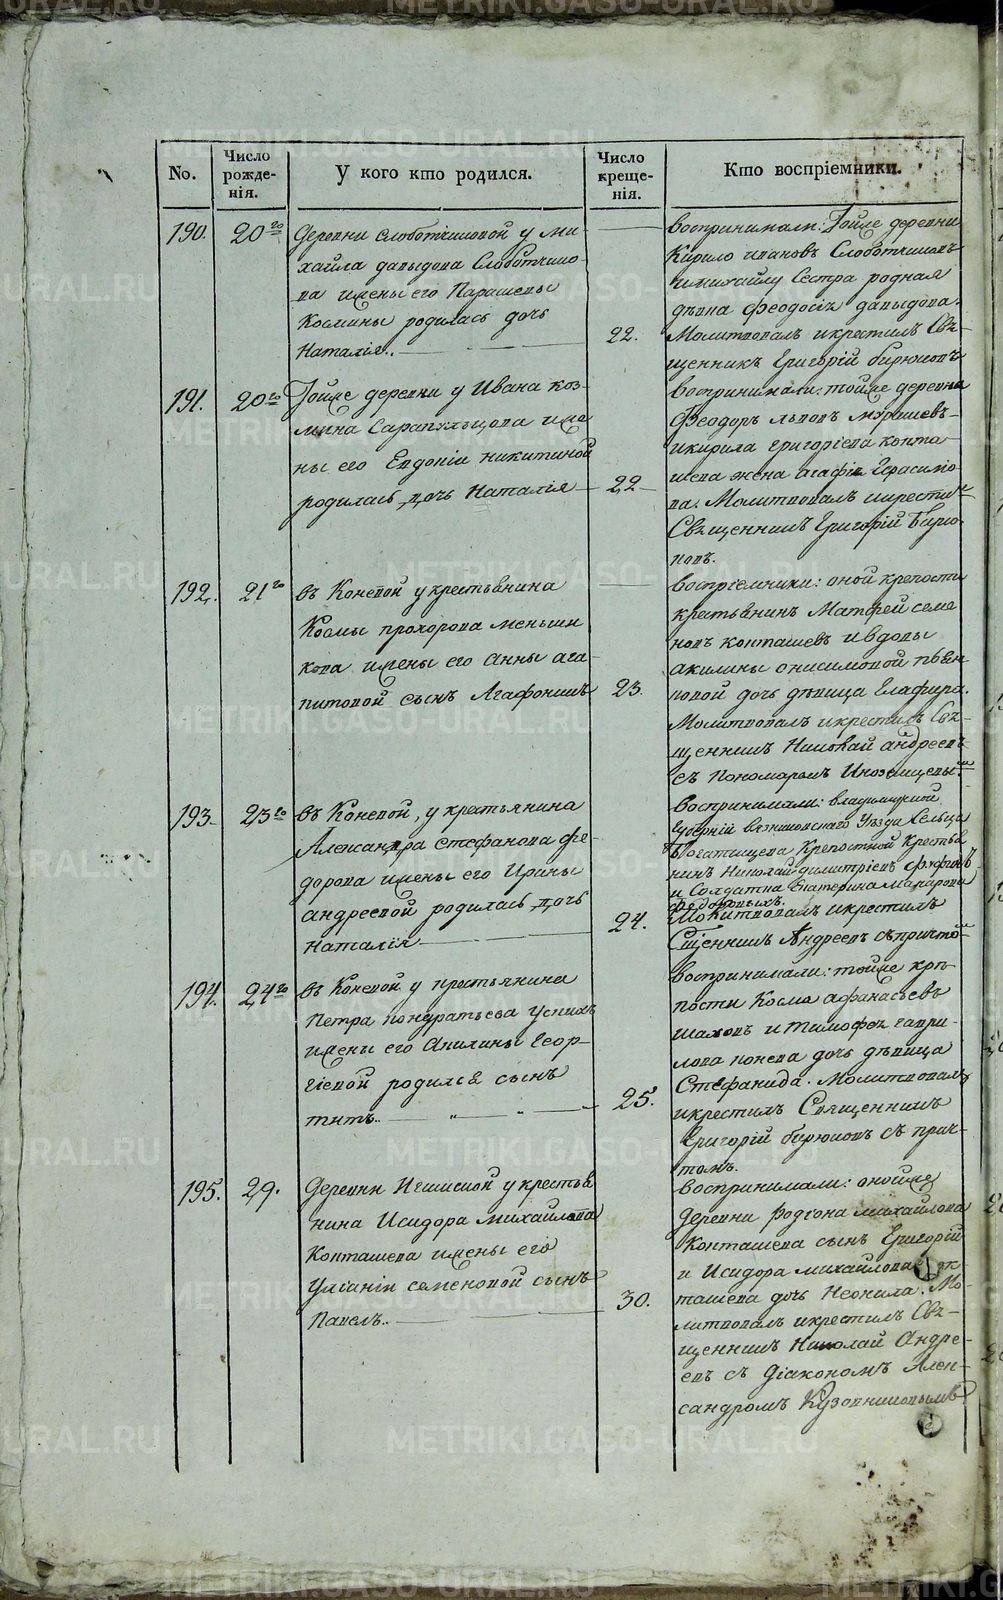 No.
Число рожде-нія.
У кого кто родился.
Число креще-нія.
Кто воспріемники.
190.
20го
деревни Слоботчиковой у Ми
хайла давыдова Слоботчико
ва имены его Парасковьи
Космины родилась дочь
Наталія..
22.
воспринимали: Тойже деревни
Кирило ивановъ Слоботчиковъ
имихайлу Сестра родная
дѣвка Феодосія давыдова.
Молитвовалъ икрестилъ Свя-
щенникъ Григорій бирюковъ
191.
20го
Тойже деревни у Ивана коз-
мина Сарапульцова иже
ны его Евдокіи никитиной
родилась дочь Наталія
22
воспринимали: тойже деревни
Феодоръ львовъ
икирила григоріева конта-
шева жена агафія Герасимо
ва. Молитвовалъ икрести
Священникъ Григорій Бирю
ковъ.
192.
21го
въ Коневой укрестьянина
Космы прохорова меньши
кова имены его анны ага-
питовой сынъ Агафоникъ
23.
воспріемники: оной крепости
крестьянинъ Матфей семе
новъ конташевъ ивдовы
акилины онисимовой
новой дочь дѣвица Глафира.
Молитвовалъ икрестилъ Свя-
щенникъ Николай андреевъ
съ Пономаремъ Иноземцевы
193
23го
въ Коневой, у крестьянина
Александра стефанова фе
дорова имены его Ирины
андреевой родилась дочь
Наталія
24.
воспринимали: владимирской
Губерніи вязниковскаго Уѣзда Сельца
Богатищева Крепостной Крестья
нинъ Николай димитріевъ
и Солдатка Екатерина макарова
Молитвовалъ икрестилъ
Сщенникъ Андреевъ съпричто
194.
24го
въ Коневой у крестьянина
Петра кондратьева
имены его Акилины Геор-
гіевой родился сынъ
титъ..
25.
воспринимали: тойже крѣ
пости Косма афанасьевъ
шаховъ и тимофея гаври-
лова конева дочь дѣвица
Стефанида. Молитвовалъ
икрестилъ Священникъ
Григорій бирюковъ съ прич-
томъ.
195.
29.
деревни Игишской у крестья
нина Исидора михайлова
Конташева имены его
Уліаніи семеновой сынъ
Павелъ..
30.
воспринимали: онойже
деревни родіона михайлова
Конташева сынъ Григорій
и Исидора михайлова Кон
ташева дочь Неонила. Мо-
литвовалъ икрестилъ Свя-
щенникъ Николай Андре-
евъ съ діакономъ Алек-
сандромъ Кузовниковымъ
METRIKI.GASO-URAL.RU